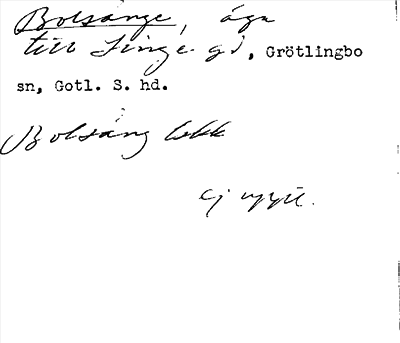 Bolsänge, äga
till Singe gd, Grötlingbo
sn, Gotl. S. hd.
Bolsäng
ej uppt.